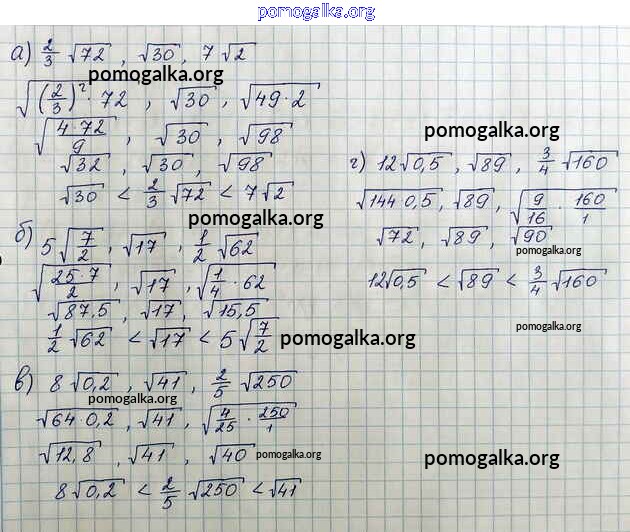 pomogalka.org
а) 2/3 √72, √30, 7√2
pomogalka.org
√((2/3)² · 72), √30, √(49·2)
√(4·72/9), √30, √98
√32, √30, √98
√30 < 2/3 √72 < 7√2
pomogalka.org
б) 5√(7/2), √17, 1/2 √62
√(25·7/2), √17, √(1/4 · 62)
√87,5, √17, √15,5
1/2 √62 < √17 < 5√(7/2)
pomogalka.org
в) 8√0,2, √41, 2/5 √250
pomogalka.org
√(64·0,2), √41, √(4/25 · 250/1)
√12,8, √41, √40
pomogalka.org
8√0,2 < 2/5 √250 < √41
pomogalka.org
г) 12√0,5, √89, 3/4 √160
√(144 0,5), √89, √(9/16 · 160/1)
√72, √89, √90
pomogalka.org
12√0,5 < √89 < 3/4 √160
pomogalka.org
pomogalka.org